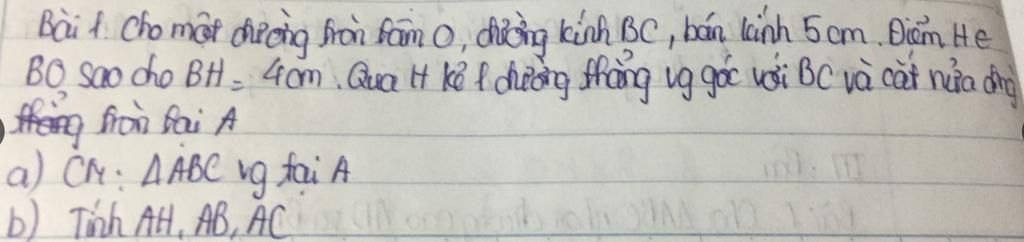 Bài 1. Cho một đường tròn tâm O, đường kính BC, bán kính 5cm. Điểm H ∈
BO sao cho BH = 4cm. Qua H kẻ 1 đường thẳng vg góc với BC và cắt nửa đng
thẳng tròn tại A
a) CM: ΔABC vg tại A
b) Tính AH, AB, AC